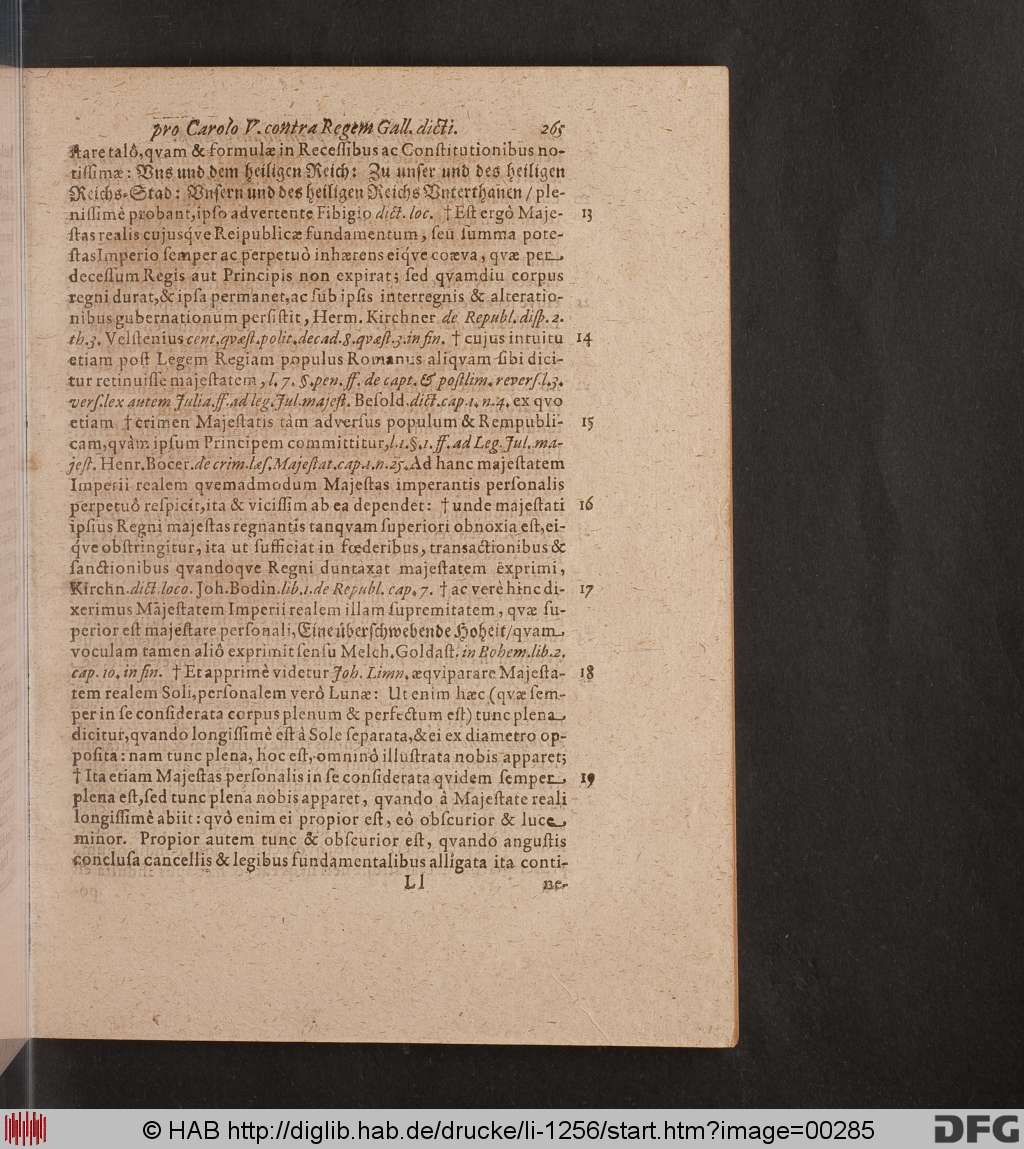 pro Carolo V. contra Regem Gall. dicti. 265
ſtare talò, qvam & formulæ in Receſſibus ac Conſtitutionibus no-
tiſſimæ: Vns und dem heiligen Reich: Zu unſer und des heiligen
Reichs-Stad: Vnſern und des heiligen Reichs Vnterthanen / ple-
niſſimè probant, ipſo advertente Fibigio dict. loc. † Eſt ergò Maje- 13
ſtas realis cujusq́ve Reipublicæ fundamentum, ſeu ſumma pote-
ſtas Imperio ſemper ac perpetuò inhærens eiq́ve coæva, qvæ per
deceſſum Regis aut Principis non expirat; ſed qvamdiu corpus
regni durat, & ipſa permanet, ac ſub ipſis interregnis & alteratio-
nibus gubernationum perſiſtit, Herm. Kirchner de Republ. diſp. 2.
th. 3. Velſtenius cent. qvæſt. polit. decad. 8. qvæſt. 3. in fin. † cujus intuitu 14
etiam poſt Legem Regiam populus Romanus aliqvam ſibi dici-
tur retinuiſſe majeſtatem, l. 7. §. pen. ff. de capt. & poſtlim. reverſ. l. 3.
verſ. lex autem Julia. ff. ad leg. Jul. majeſt. Beſold. dict. cap. 1. n. 4. ex qvo
etiam † crimen Majeſtatis tàm adverſus populum & Rempubli- 15
cam, qvàm ipſum Principem committitur, l. 1. §. 1. ff. ad Leg. Jul. ma-
jeſt. Henr. Bocer. de crim. læſ. Majeſtat. cap. 1. n. 25. Ad hanc majeſtatem
Imperii realem qvemadmodum Majeſtas imperantis perſonalis
perpetuò reſpicit, ita & viciſſim ab ea dependet: † unde majeſtati 16
ipſius Regni majeſtas regnantis tanqvam ſuperiori obnoxia eſt, ei-
q́ve obſtringitur, ita ut ſufficiat in fœderibus, transactionibus &
ſanctionibus qvandoqve Regni duntaxat majeſtatem exprimi,
Kirchn. dict. loco. Joh. Bodin. lib. 1. de Republ. cap. 7. † ac verè hinc di- 17
xerimus Majeſtatem Imperii realem illam ſupremitatem, qvæ ſu-
perior eſt majeſtate perſonali, Eine überſchwebende Hoheit / qvam
voculam tamen aliô exprimit ſenſu Melch. Goldaſt. in Bohem. lib. 2.
cap. 10. in fin. † Et apprimè videtur Joh. Limn. æqviparare Majeſta- 18
tem realem Soli, perſonalem verò Lunæ: Ut enim hæc (qvæ ſem-
per in ſe conſiderata corpus plenum & perfectum eſt) tunc plena
dicitur, qvando longiſſimè eſt à Sole ſeparata, & ei ex diametro op-
poſita: nam tunc plena, hoc eſt, omninò illuſtrata nobis apparet;
† Ita etiam Majeſtas perſonalis in ſe conſiderata qvidem ſemper 19
plena eſt, ſed tunc plena nobis apparet, qvando à Majeſtate reali
longiſſimè abiit: qvò enim ei propior eſt, eò obſcurior & luce
minor. Propior autem tunc & obſcurior eſt, qvando anguſtis
concluſa cancellis & legibus fundamentalibus alligata ita conti-
Ll ne-
© HAB http://diglib.hab.de/drucke/li-1256/start.htm?image=00285
DFG